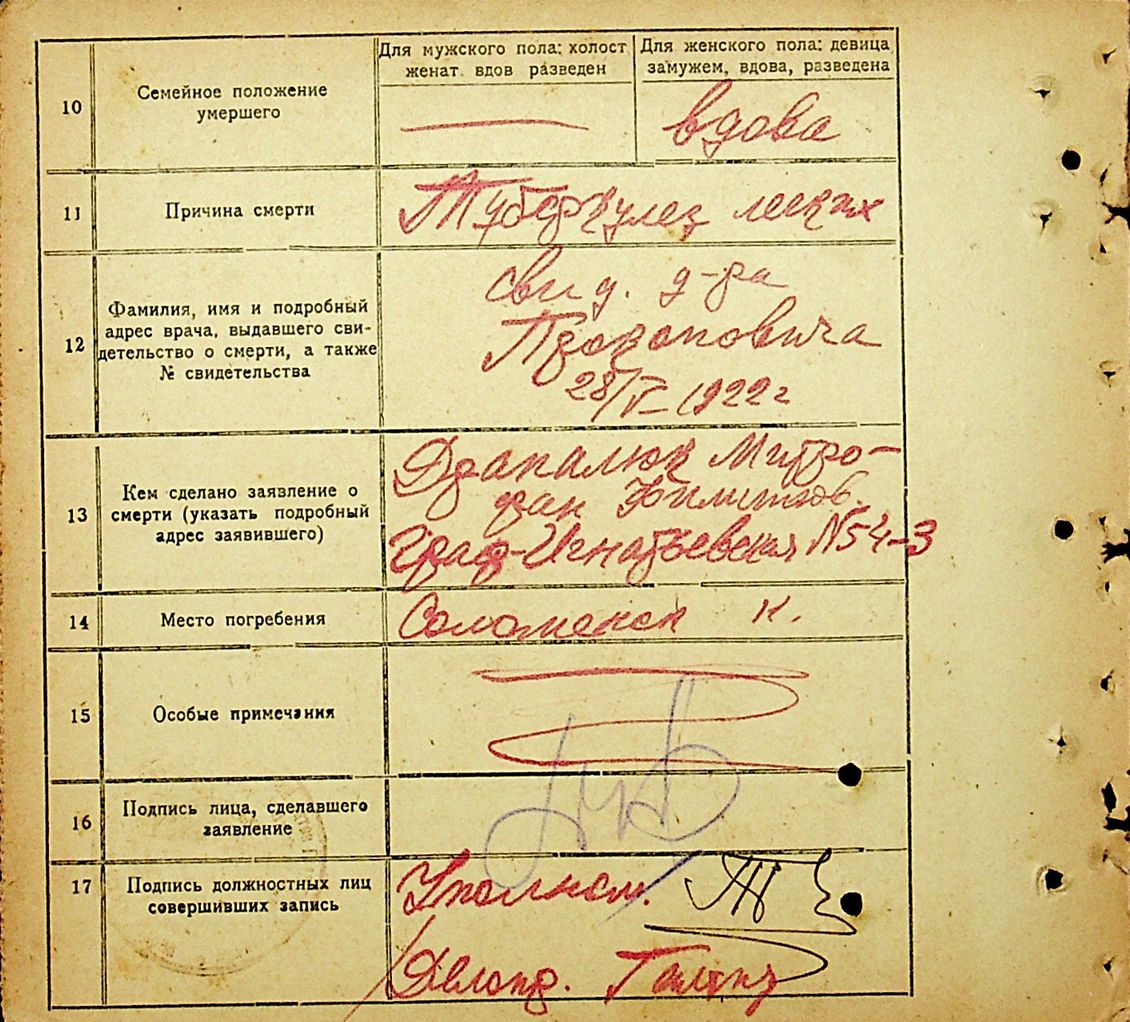 Для мужского пола: холост Для женского пола: девица
женат. вдов разведен замужем, вдова, разведена
10 Семейное положение
умершего
вдова
11 Причина смерти Туберкулез легких
12 Фамилия, имя и подробный
адрес врача, выдавшего сви-
детельство о смерти, а также
№ свидетельства
свид. д-ра
Прокоповича
28/IV-1922 г
13 Кем сделано заявление о
смерти (указать подробный
адрес заявившего)
Драпалюк Митро-
фан
Граф-Игнатьевская № 54-3
14 Место погребения Соломенск к.
15 Особые примечания
16 Подпись лица, сделавшего
заявление
17 Подпись должностных лиц
совершивших запись
Уполном.
Делопр.